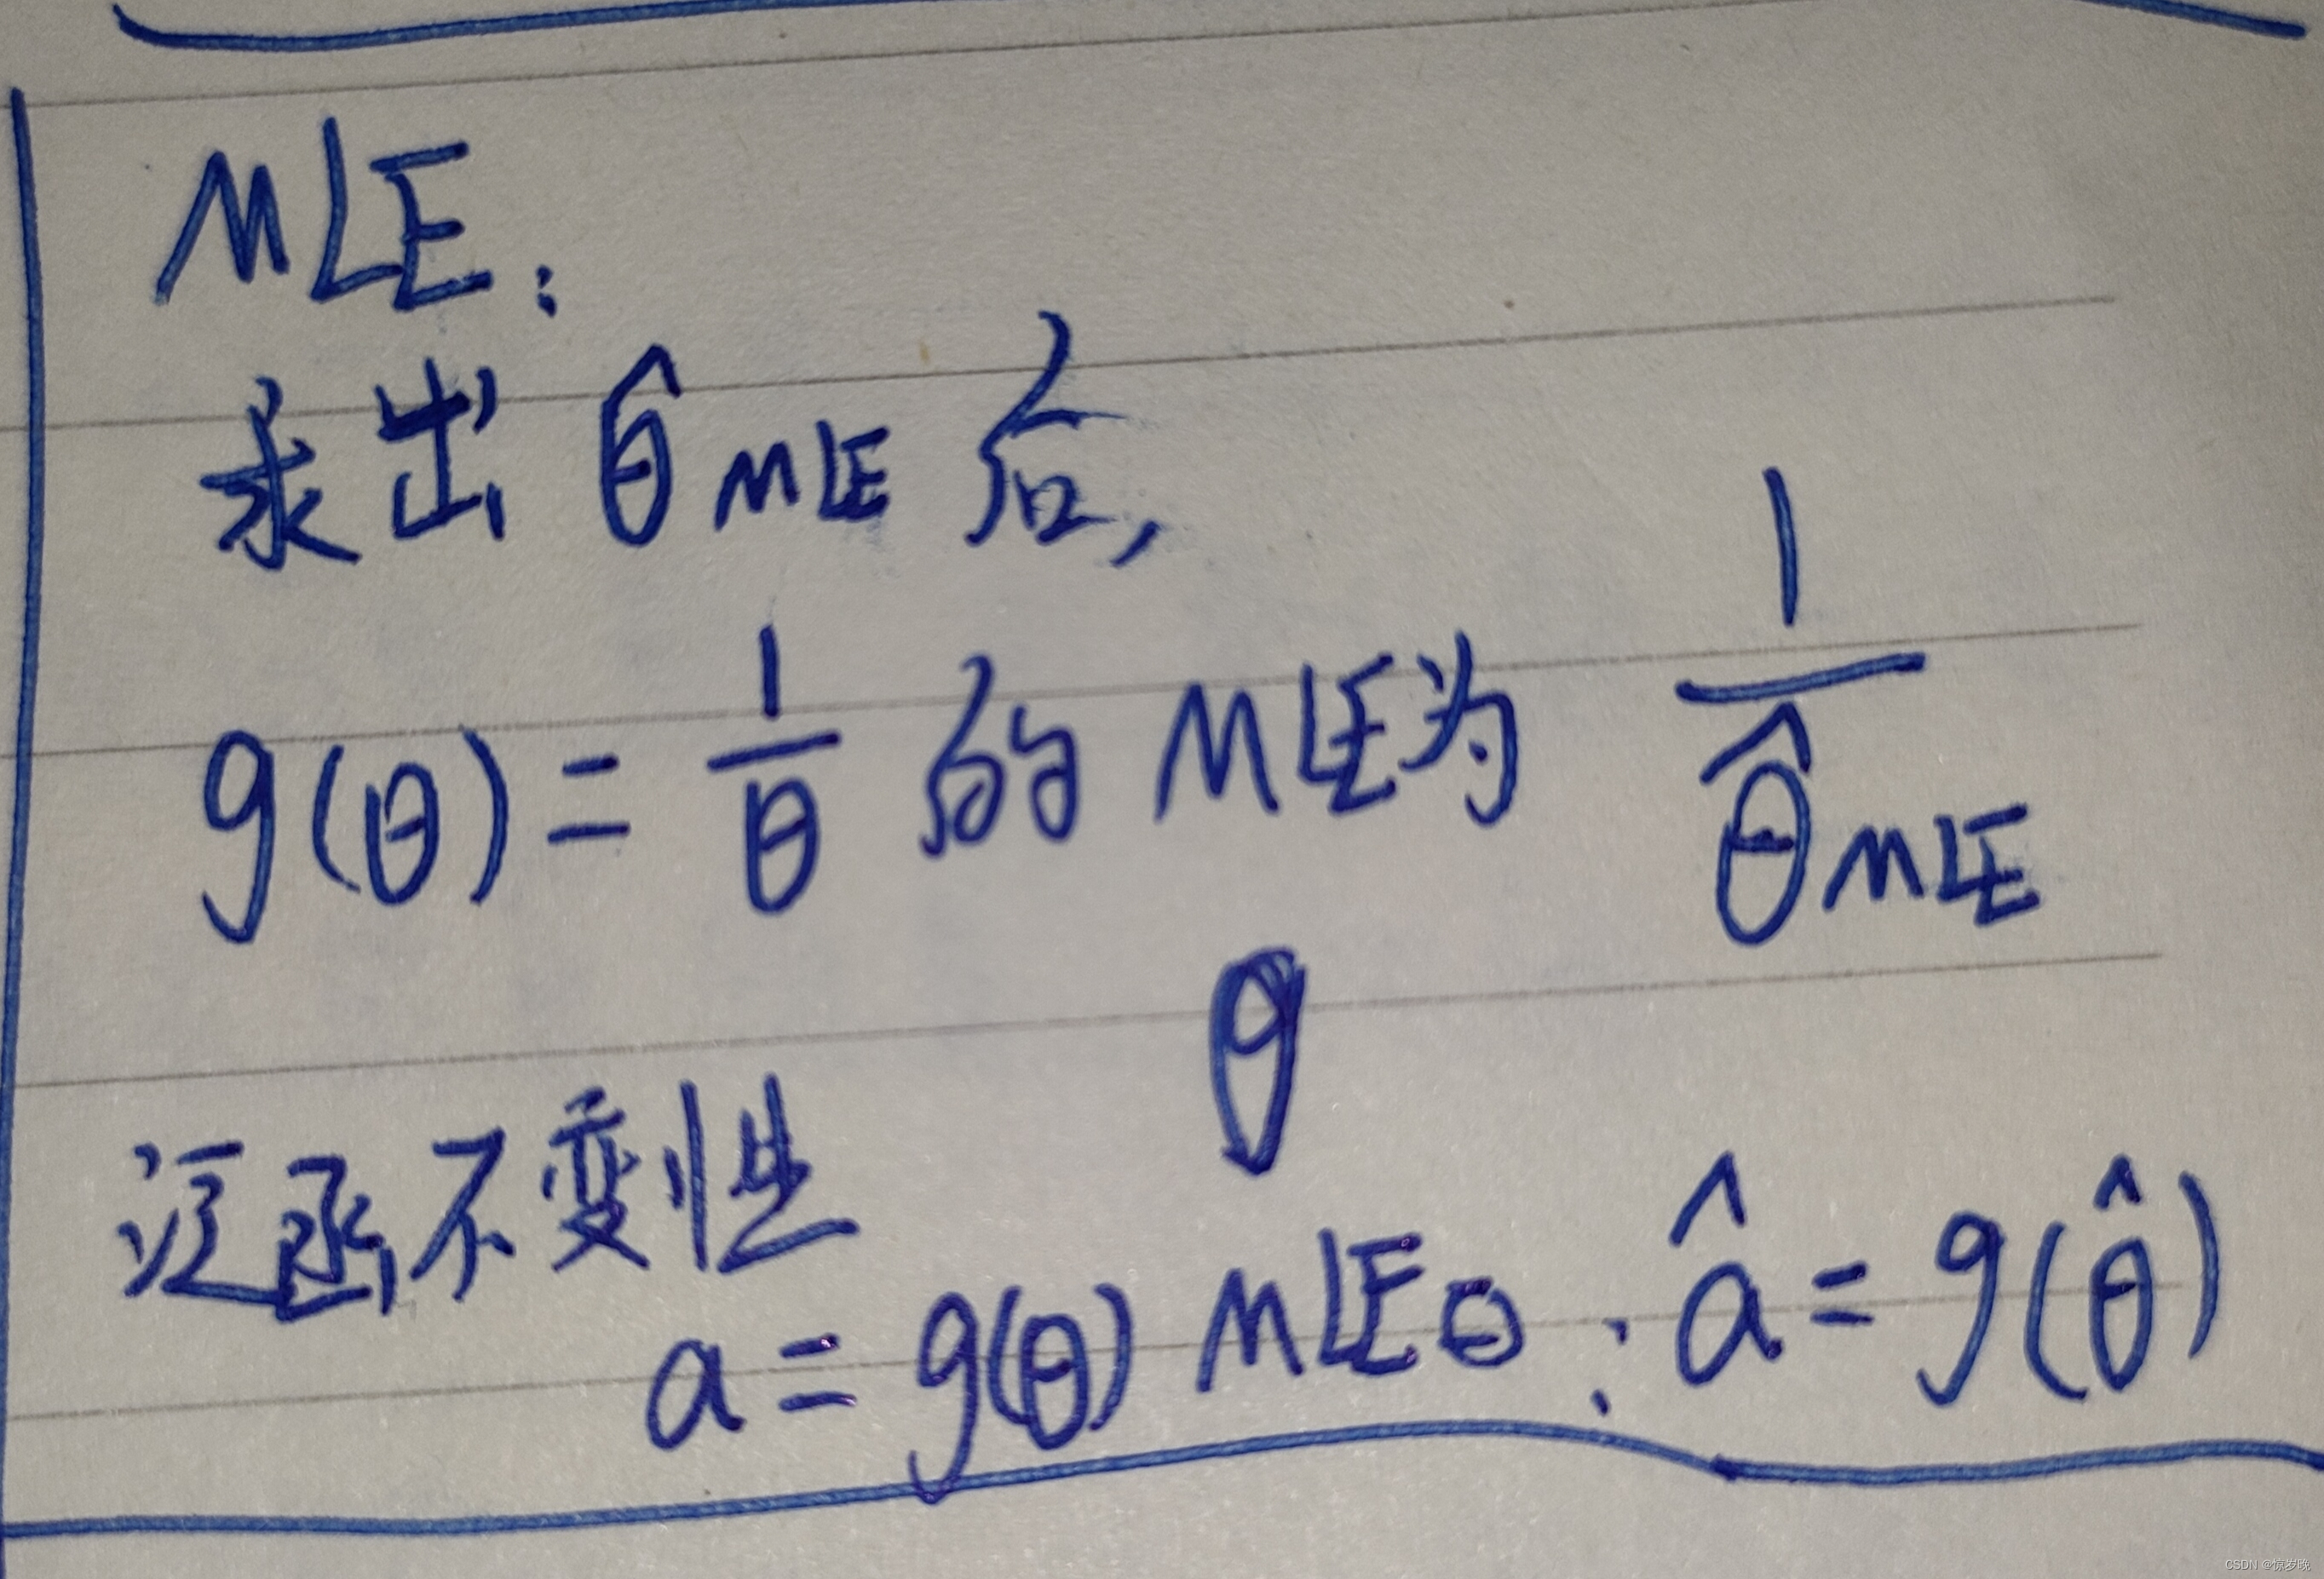 MLE:
求出 θ̂ MLE 后,
g(θ) = 1/θ 的 MLE为 1/θ̂MLE
泛函不变性
a = g(θ) MLE : â = g(θ̂)
CSDN @惊岁晚